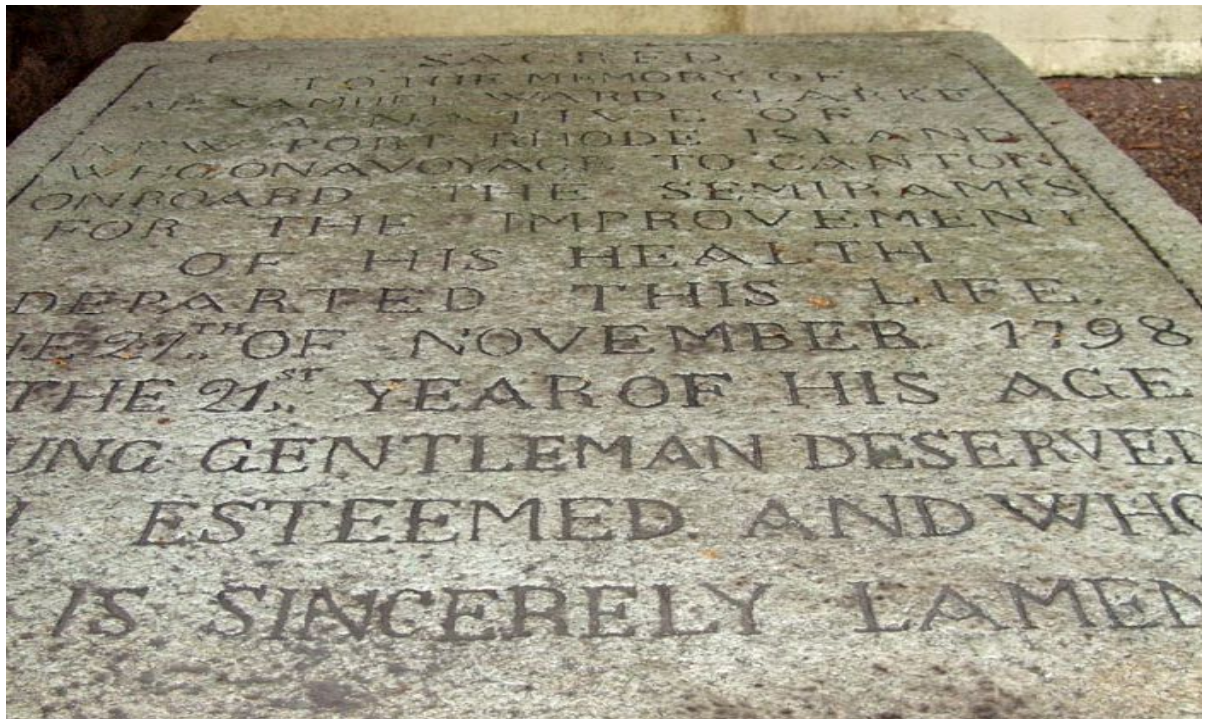 SACRED
TO THE MEMORY OF
MR SAMUEL WARD CLARKE
A NATIVE OF
NEW PORT RHODE ISLAND
WHO ON A VOYAGE TO CANTON
ONBOARD THE SEMIRAMIS
FOR THE IMPROVEMENT
OF HIS HEALTH
DEPARTED THIS LIFE.
HE 27TH OF NOVEMBER 1798
THE 21ST YEAR OF HIS AGE
UNG GENTLEMAN DESERVED
ESTEEMED AND WHO
IS SINCERELY LAMEN